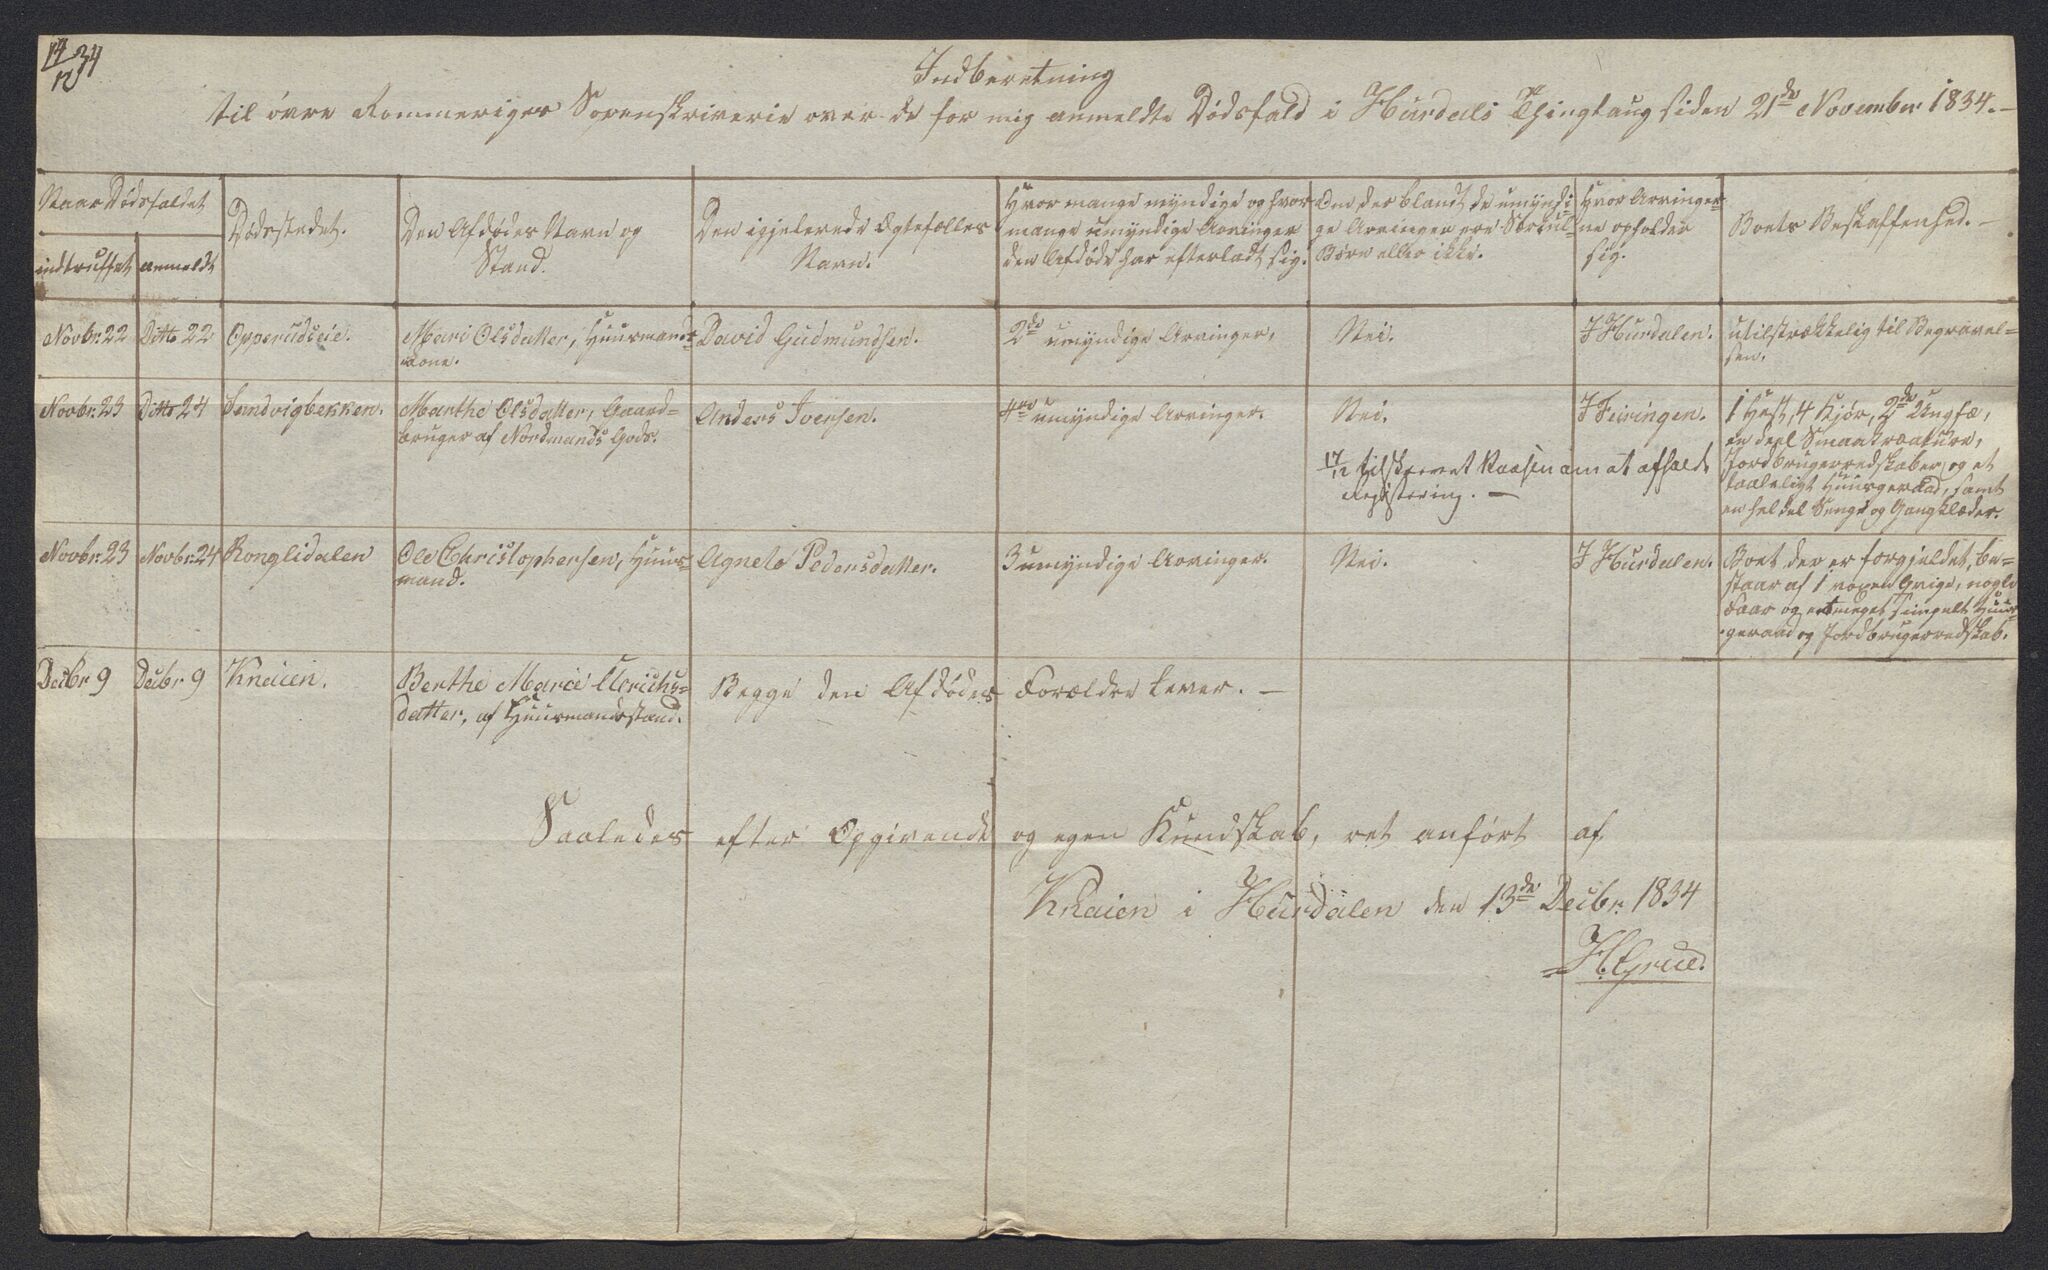 14/12 34
Indberetning
til øvre Rommeriges Sorenskriverie over de for mig anmeldte Dødsfald i Hurdals Thinglaug siden 21de November 1834. –
Naar Dødsfaldet
indtruffet
anmeldt
Dødsstedet.
Den Afdødes Navn og
Stand.
Den igjenlevende Ægtefælles
Navn.
Hvor mange myndige og hvor
mange umyndige Arvinger
den Afdøde har efterladt sig.
Om der blandt de umyndi-
ge Arvinger ere Særkul-
Børn eller ikke.
Hvor Arvinger-
ne opholder
sig.
Boets Beskaffenhed. –
Novbr. 22
Ditto 22
Opperudseie.
Mari Olsdatter, Huusmands-
kone.
David Gudmundsen.
2de umyndige Arvinger.
Nei.
I Hurdalen.
utilstrækkelig til Begravel-
sen.
Novbr. 23
Ditto 24
Sandvigbekken.
Marthe Olsdatter, Gaard-
bruger af Nordmands Gods.
Anders Iversen.
4re umyndige Arvinger.
Nei.
I Feiringen.
1 Hest, 4 Kjør, 2de Ungfæ,
en deel Smaakræature,
Jordbrugerredskaber, og et
taaleligt Huusgeraad, samt
en hel del Senge og Gangklæder.
17/12 tilskrevet Raasen om at afholde
Registering. –
Novbr. 23
Novbr. 24
Ronglidalen
Ole Christophersen, Huus-
mand.
Agnete Pedersdatter.
3 umyndige Arvinger.
Nei.
I Hurdalen.
Boet, der er forgjeldet, be-
staar af 1 voxen Qvige, nogle
Faar og et meget simpelt Huus-
geraad og Jordbrugerredskab.
Decbr 9
Decbr 9
Knaien.
Berthe Marie Ulrichs-
datter, af Huusmandsstand.
Begge den Afdødes Forælder lever. –
Saaledes efter Opgivende og egen Kundskab, ret anført af
Knaien i Hurdalen den 13de Decbr. 1834
H. Grue.